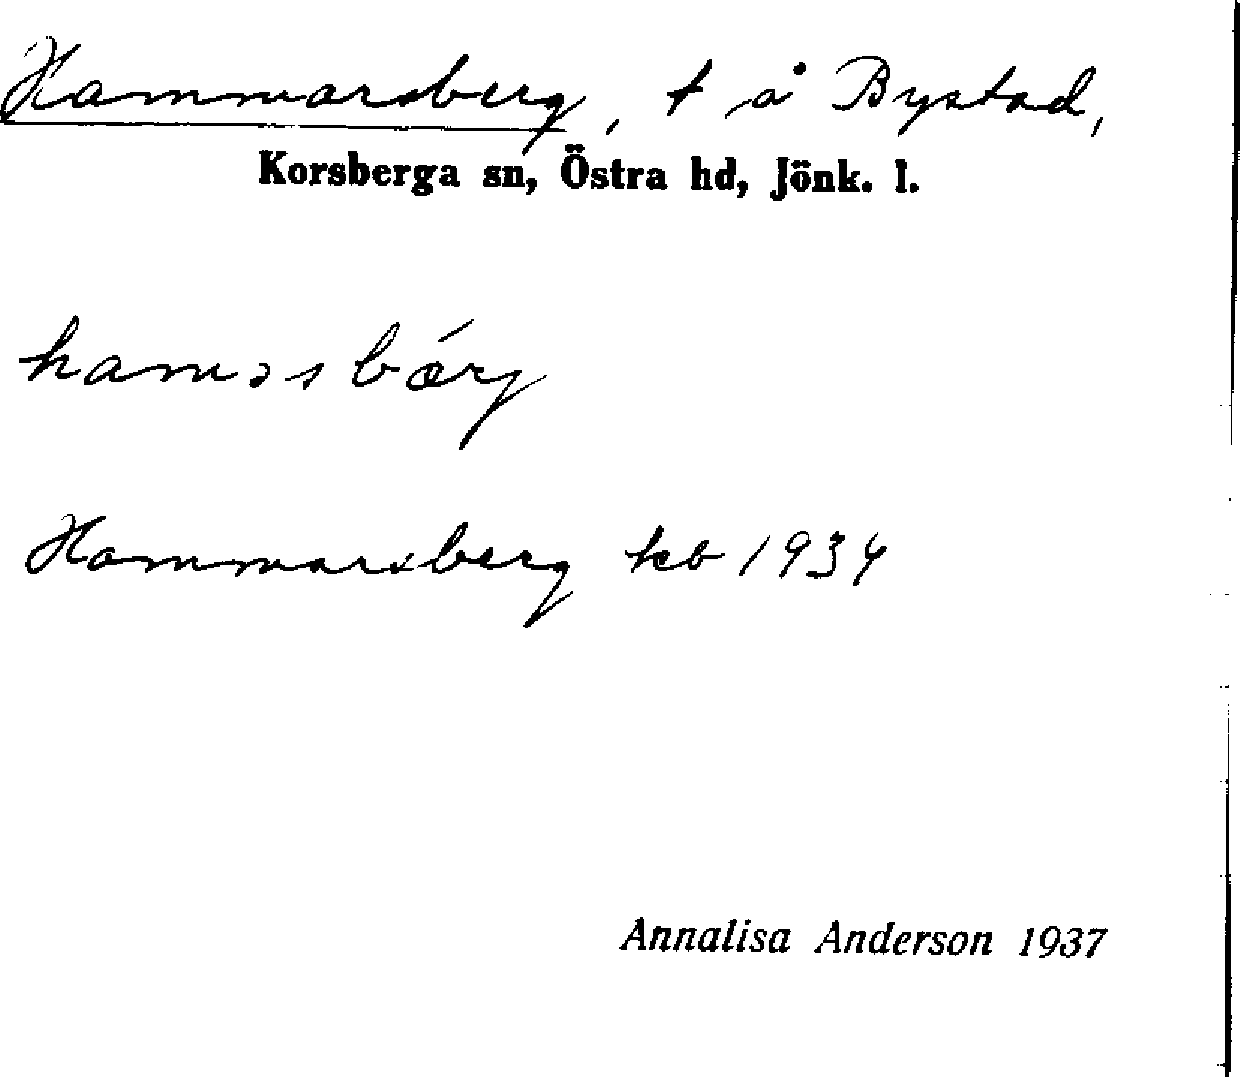 Hammarsberg, t å Bystad,
Korsberga sn, Östra hd, Jönk. l.
haməsbárj
Hammarsberg kb 1934
Annalisa Anderson 1937